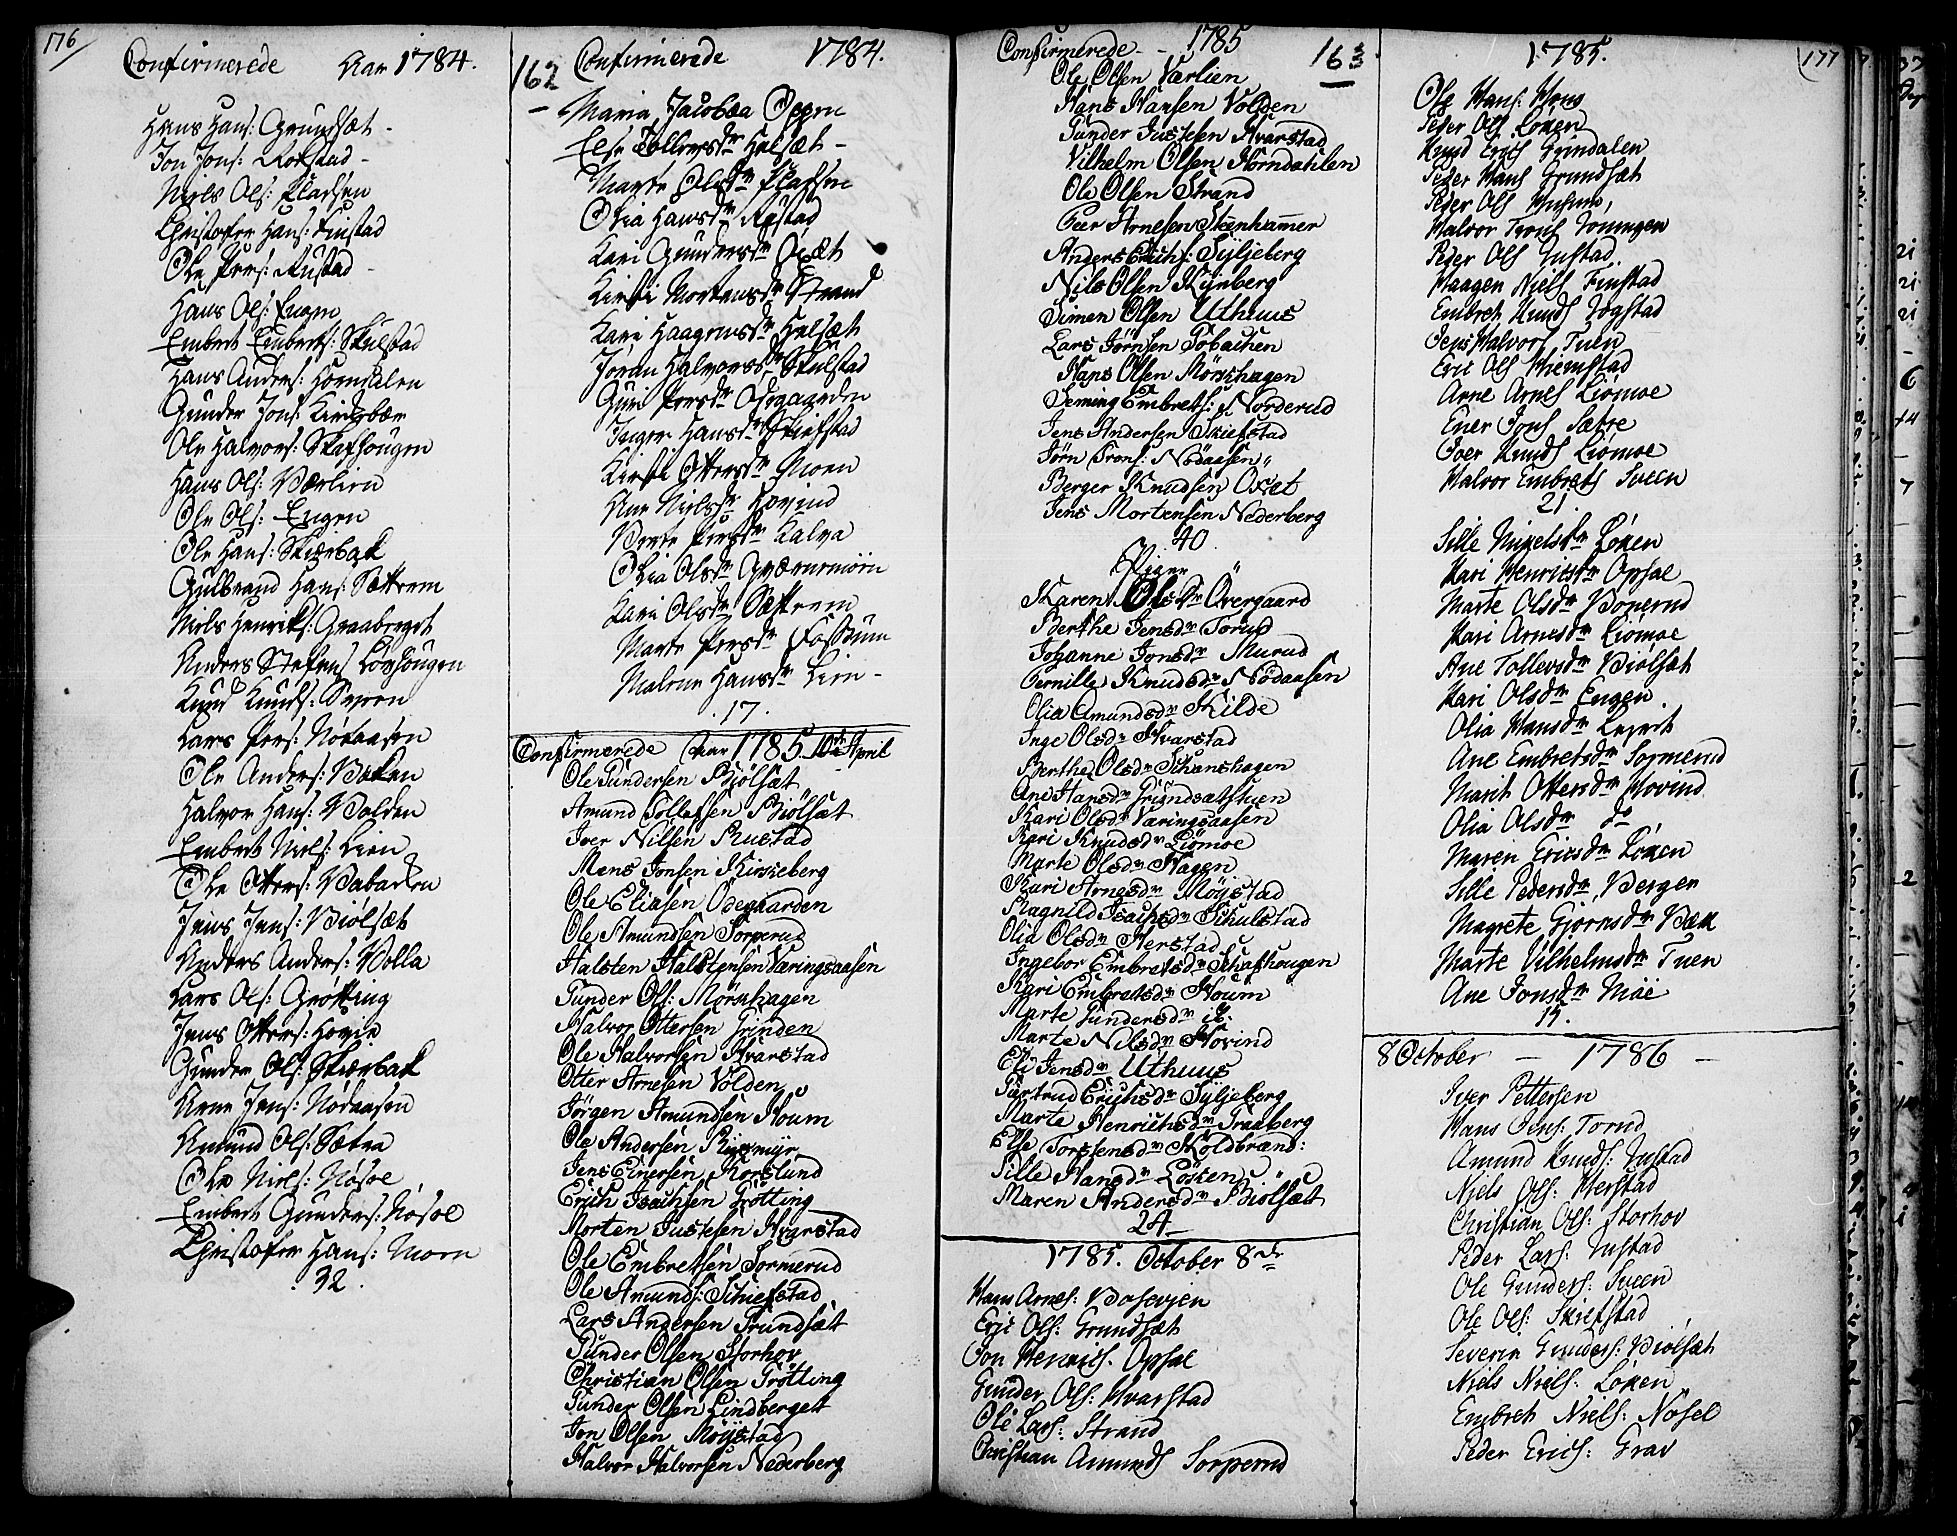 176
Confirmerede Aar 1784.
Hans Hans: Grundsæt -
Jon Jons: Rokstad -
Niels Ols: Pladsen
Christofer Hans: Finstad
Ole Pers: Rustad -
Hans Ols: Engen
Embert Emberts: Skulstad
Hans Anders: Horndalen
Gunder Jons: Kirkebær
Ole Halvors: Skafhougen
Hans Ols: Værlien
Ole Ols: Engen
Ole Hans: Skiærbak
Gulbrand Hans: Sættrem
Niels Henriks: Graaberget
Anders Stefens Løvhougen
Knud Knuds: Sveen
Lars Pers: Nodaasen
Ole Anders: Bakken
Halvor Hans: Volden
Embert Niels: Lien
Ole Otters: Bakken
Jens Jens: Biølsæt
Anders Anders: Volla
Lars Ols: Grøtting
Jens Otters: Hovie
Gunder Ols: Skiærbak
Arne Jens: Nodaasen
Amund Ols: Sætra
Ole Niels: Nøsoe
Embert Gunders: Nøsoe
Christofer Hans: Moen
32.
162
Confirmerede 1784.
Maria Jacobæa Oppen
Else Tollevsdr Helsæt -
Marte Olsdr Pladsen
Olia Hansdr Rustad
Kari Gundersdr Oxæt
Kirsti Mortensdr Strand
Kari Haagensdr Helsæt
Joran Halvorsdr Skulstad
Guri Persdr Ødegaarden
Inger Hansdr Skiefstad
Kirsti Ottersdr Moen
Ane Nielsdr Hovind
Berte Persdr Kalva
Olia Olsdr Qværnmoen
Kari Olsdr Sættrem
Marte Persdr Fossum
Malene Hansdr Lien -
17.
Confirmerede Aar 1785. 10de April
Ole Gundersen Biölsæt
Amund Tollefsen Biölsæt
Iver Nilsen Rustad
Mens Jonsen Kirkeberg
Ole Eliasen Ödegaarden
Ole Amundsen Sorperud
Halsten Halstensen Væringsaasen
Gunder Ols: Mörschagen
Halvor Ottersen Grinden
Ole Halvorsen Hvarstad
Otter Arnesen Volden
Jörgen Amundsen Houm
Ole Andersen Rismyr
Jens Einersen Korslund
Erich Isachsen Grötting
Morten Gustesen Hvarstad
Ole Embretsen Sormerud
Ole Amunds: Schiefstad
Lars Andersen Grundsæt
Gunder Olsen Storhov
Christian Olsen Grötting
Gunder Olsen Lindberget
Jon Olsen Möystad
Halvor Halvorsen Nederberg
Confirmerede - - 1785 163
Ole Olsen Værlien
Hans Hansen Volden
Gunder Gustesen Hvarstad
Vilhelm Olsen Horndahlen
Ole Olsen Strand
Peer Arnesen Stenhammer
Anders Erichs: Syljeberg
Nils Olsen Kynberg
Simen Olsen Uthuus
Lars Jörnsen Tobachen
Hans Olsen Mörschagen
Seming Embrets: Norderud
Jens Andersen Skiefstad
Jörn Trons: Nödaasen
Berger Knudsen Oxæt
Jens Mortensen Nederberg
40
Piger
Karen Olsdr Övergaard
Berthe Jensdr Torud
Johanne Jonsdr Murud
Pernille Knudsdr Nödaasen
Olia Amundsdr Kilde
Inge Olsdr Hvarstad
Berthe Olsdr Schanshagen
Ane Hansdr Grundsætstuen
Kari Olsdr Væringsaasen
Kari Knudsdr Liömoe
Marte Olsdr Hagen
Kari Arnesdr Möystad
Ragnild Isachsdr Schulstad
Olia Olsdr Herstad
Ingebor Embretsdr Schafhougen
Kari Embretsdr Houm
Marte Gundersdr ib.
Marte Nilsdr Hovind
Eli Jensdr Uthuus
Giertrud Erichsdr Syljeberg
Marte Henrichsdr Graaberg
Else Torstensdr Koldbrænd:
Sille Hansdr Lösken
Maren Andersdr Biölsæt
24
1785. October 8de
Hans Arnes: Bosevien
Eric Ols: Grundsæt
Jon Henrics. Opsal
Gunder Ols: Hvarstad
Ole Lars: Strand
Christian Amunds Sorperud
1785. 177
Ole Hans: Moe
Peder Ols Loken
Knud Erics Grindalen
Peder Hans Grundsæt
Peder Ols
Halvor Trons Joningen
Peder Ols Justad
Haagen Niels Finstad
Embret Knuds Jogstad
Jens Halvors Tuen
Eric Ols Hiemstad
Arne Arnes Liömoe
Ener Jons Sætre
Iver Knuds Liömoe
Halvor Embrets Sveen
21
Sille Mikelsdr Loken
Kari Henricsdr Opsal
Marte Olsdr Bonerud
Kari Arnesdr Liömoe
Ane Tollevsdr Biölsæt
Kari Olsdr Engen
Olia Hansdr Legret
Ane Embretsdr Sormerud
Marit Ottersdr Hovind
Olia Olsdr do
Maren Ericsdr Loken
Sille Pedersdr Bergen
Magrete Gjörnsdr Bæk
Marte Vilhelmsdr Tuen
Ane Jonsdr Moe
15.
8 October - 1786 -
Iver Pettersen
Hans Jens: Torud
Amund Knuds: Justad
Niels Ols: Herstad
Christian Ols: Storhov
Peder Lars: Justad
Ole Gunders: Sveen
Ole Ols: Skiefstad
Severin Gunders: Biölsæt
Niels Niels: Loken
Embret Niels: Nosel
Peder Erics: Grav